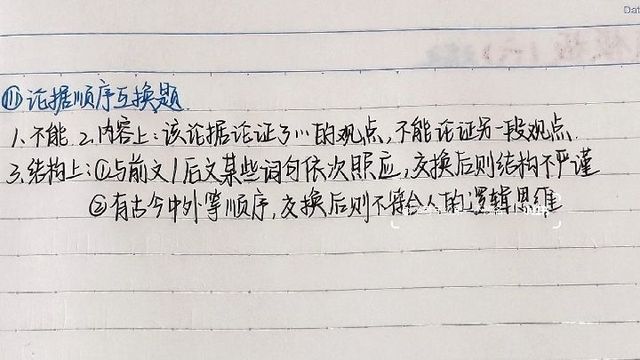 Dat
⑪论据顺序互换题
1.不能 2.内容上:该论据论证了…的观点,不能论证另一段观点.
3.结构上:①与前文/后文某些词句依次照应,交换后则结构不严谨
②有古今中外等顺序,交换后则不符合人的逻辑思维